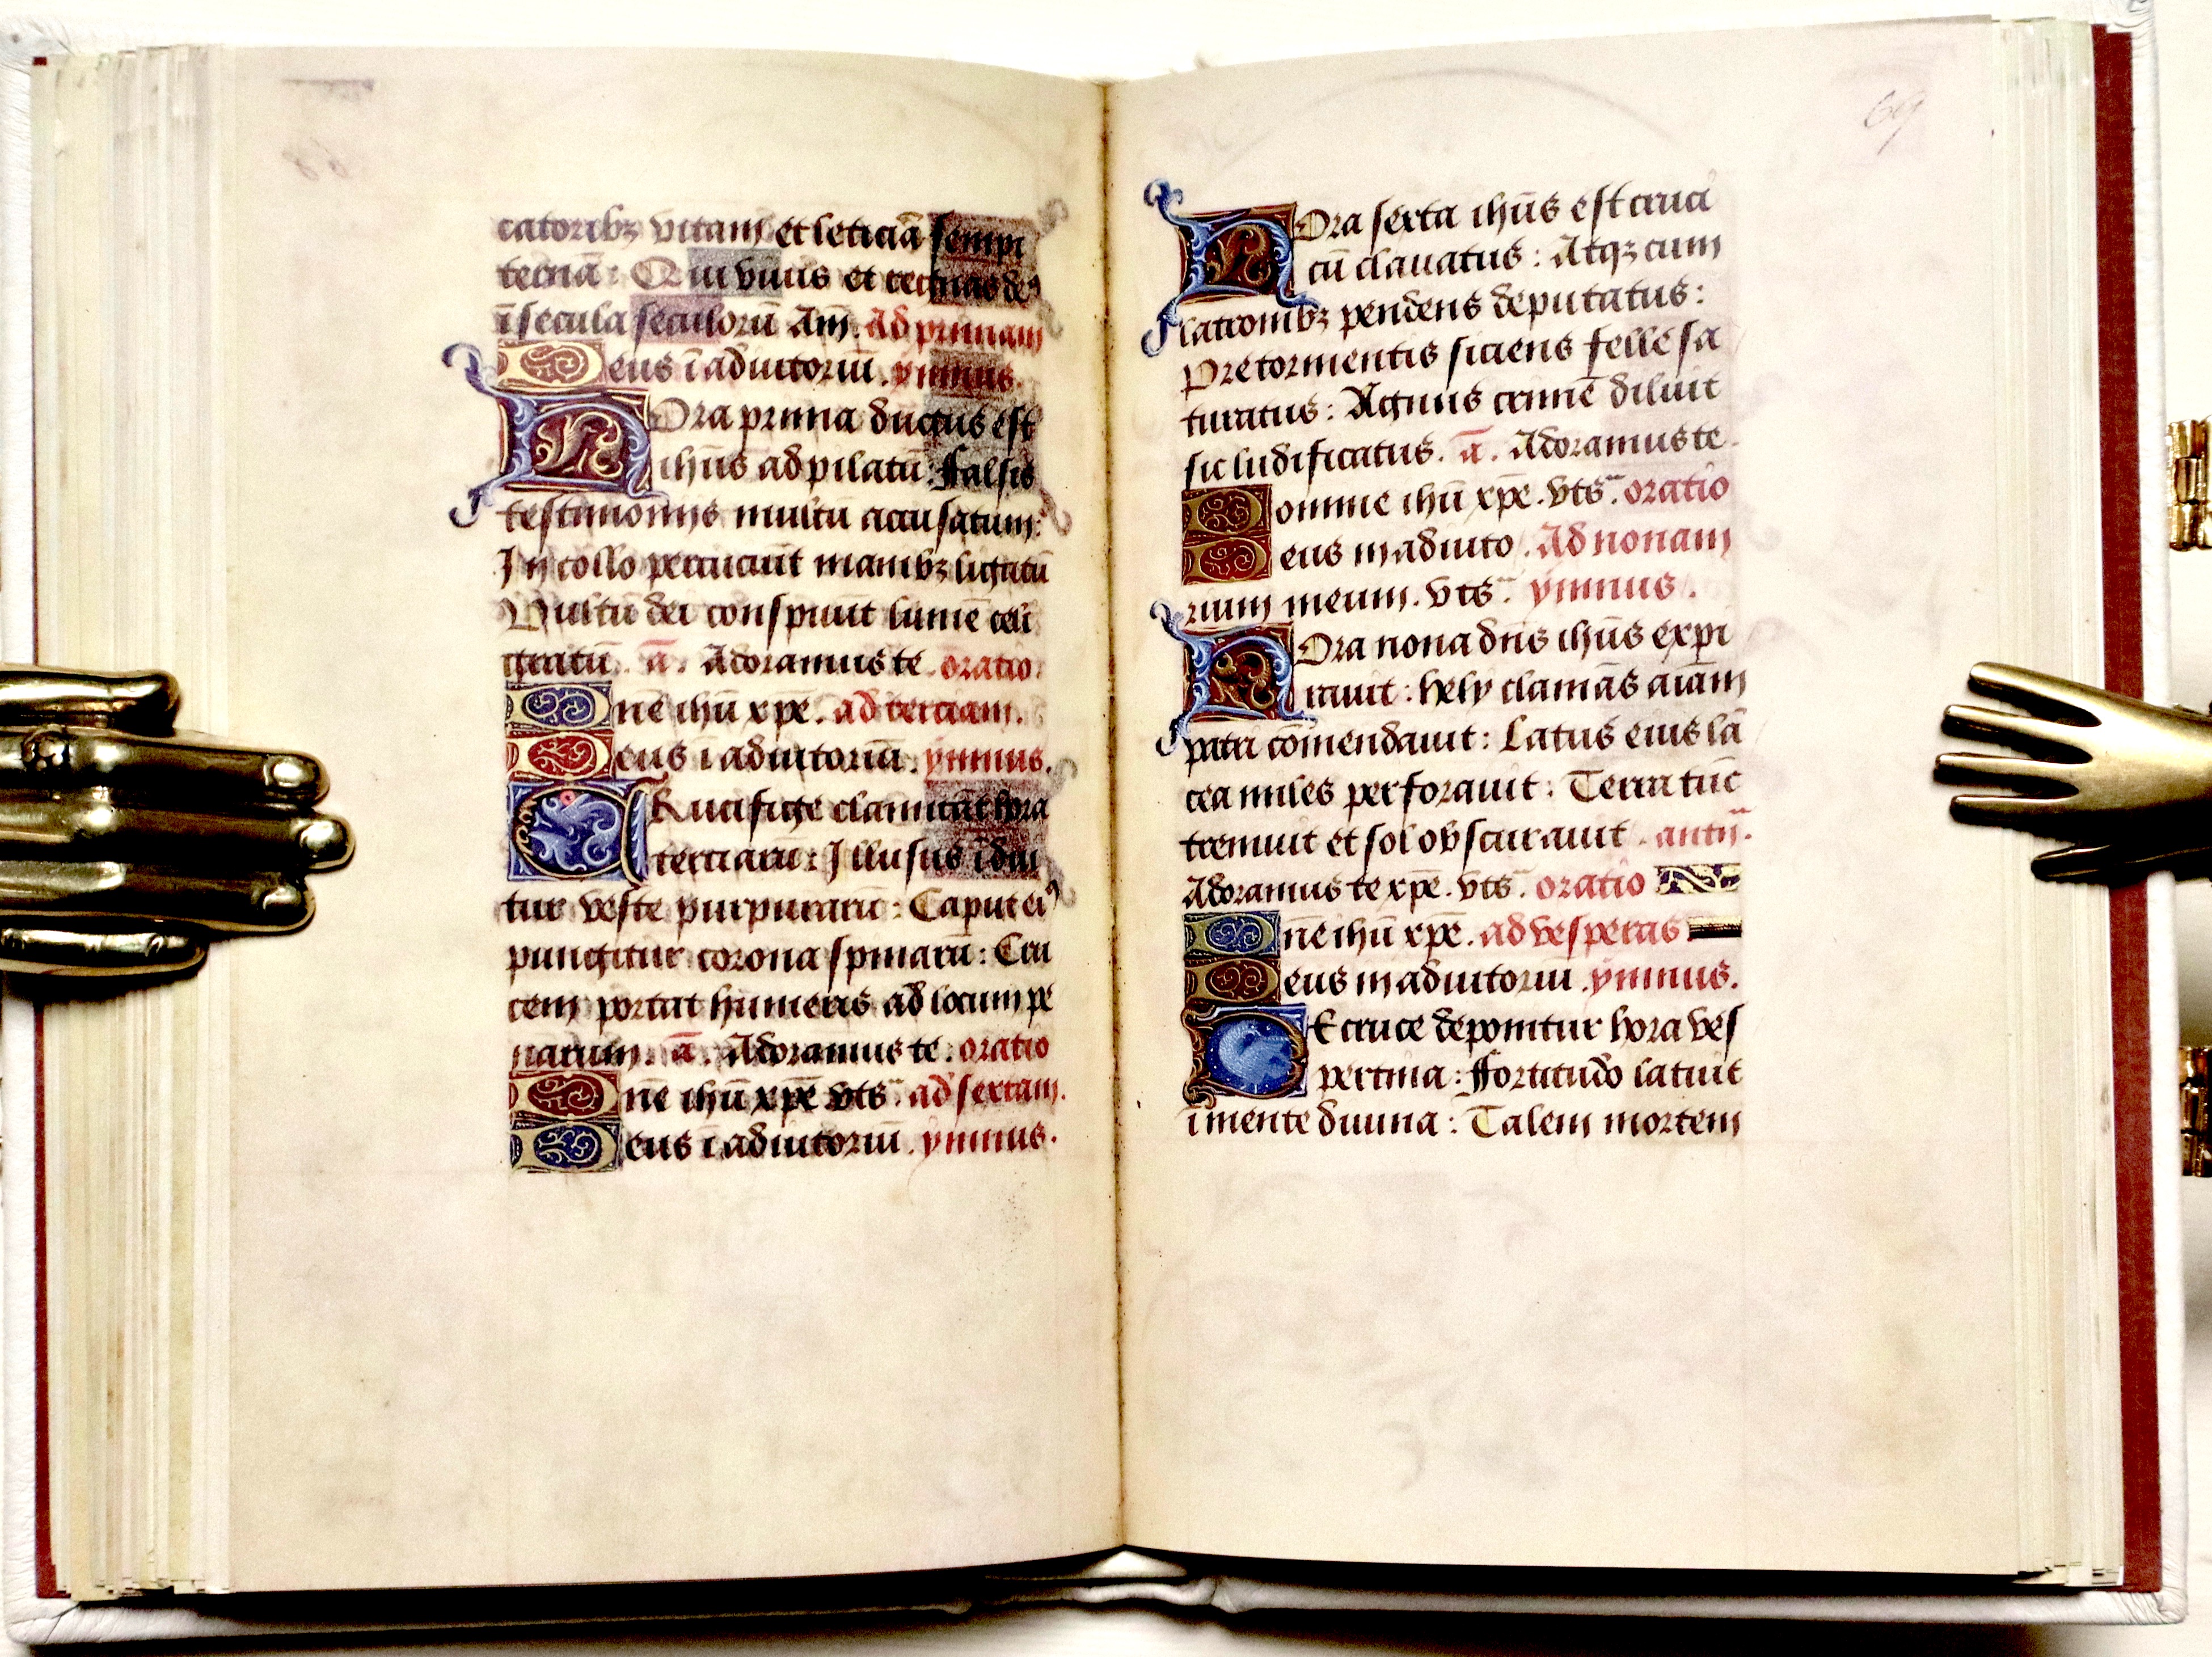 catoribꝫ vitam et leticiā sempi
ternā: Qui viuis et regnas deꝰ
ī secula seculorū Am̄. Ad primam
Deus ī adiutoriū. ymnus.
HOra prima ductus est
ihūs ad pilatū: Falsis
testimoniis multū accusatum:
In collo percuciūt manibꝫ ligatū
Vultū dei conspuūt lumē celi
gratū. ā. Adoramus te. oratio.
Dn̄e ihū xp̄e. ad terciam.
Deus ī adiutoriū. ymnus.
CRucifige clamitāt hora
terciarū: Illusus īdui
tur veste purpurarū: Caput eiꝰ
pungitur corona spinarū: Cru
cem portat humeris ad locum pe
narum. ā. Adoramus te. oratio
Dn̄e ihū xp̄e vts. ad sextam.
Deus ī adiutoriū. ymnus.
69
HOra sexta ihūs est cruci
cū clauatus: Atqꝫ cum
latronibꝫ pendens deputatus:
Pre tormentis siciens felle sa
turatus: Agnus crimē diluit
sic ludificatus. ā. Adoramus te.
Domine ihū xp̄e. vts. oratio
Deus in adiuto. Ad nonam
rium meum. vts. ymnus.
HOra nona dn̄s ihūs expi
rauit: hely clamās aīam
patri cōmendauit: Latus eius lā
cea miles perforauit: Terra tūc
tremuit et sol obscurauit. antiī.
Adoramus te xp̄e. vts. oratio
Dn̄e ihū xp̄e. ad vesperas
Deus in adiutoriū. ymnus.
DE cruce deponitur hora ves
pertina: Fortitudo latuit
ī mente diuina: Talem mortem